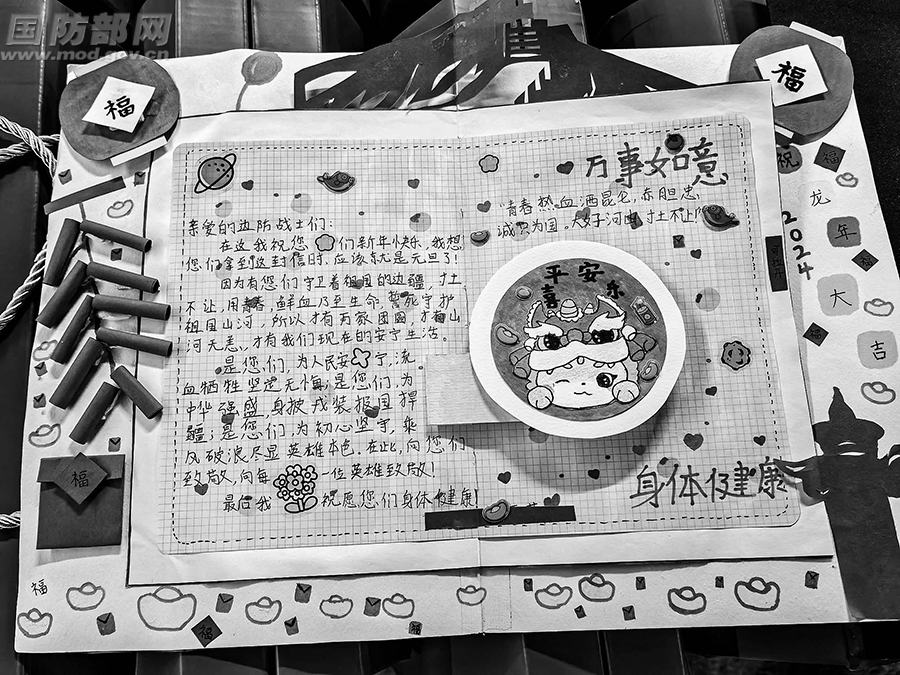 国防部网
www.mod.gov.cn
福
福
万事如意
"青春热血洒昆仑,赤胆忠
诚只为国。大好河山,寸土不让"
亲爱的边防战士们:
在这我祝您们新年快乐,我想
您们拿到这封信时,应该就是元旦了!
因为有您们守卫着祖国的边疆,寸土
不让,用青春,鲜血乃至生命誓死守护
祖国山河,所以才有万家团圆,才有山
河无恙,才有我们现在的安宁生活。
是您们,为人民安宁,流
血牺牲坚贞无悔;是您们,为
中华强盛,身披戎装报国捍
疆;是您们,为初心坚守,乘
风破浪尽显英雄本色。在此,向您们
致敬,向每一位英雄致敬!
最后我祝愿您们身体健康!
平安
喜乐
身体健康
祝
福
龙
年
大
吉
2024
福
福
福
福